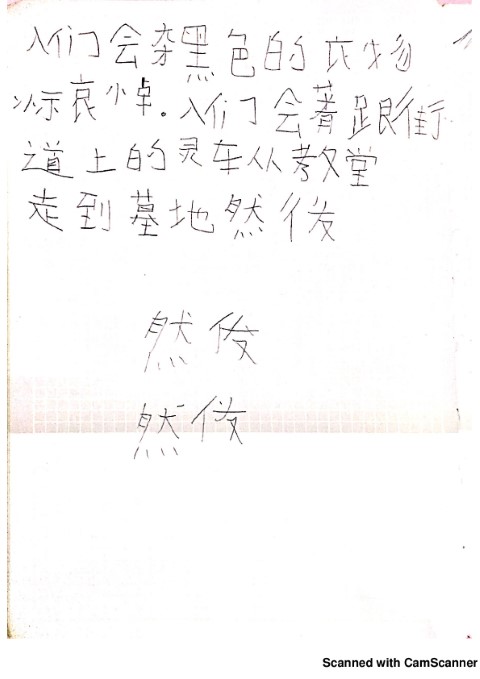 人们会杂黑色的衣物
以示哀悼。人们会着跟街
道上的灵车从教堂
走到墓地然後
然俊
然俊
Scanned with CamScanner